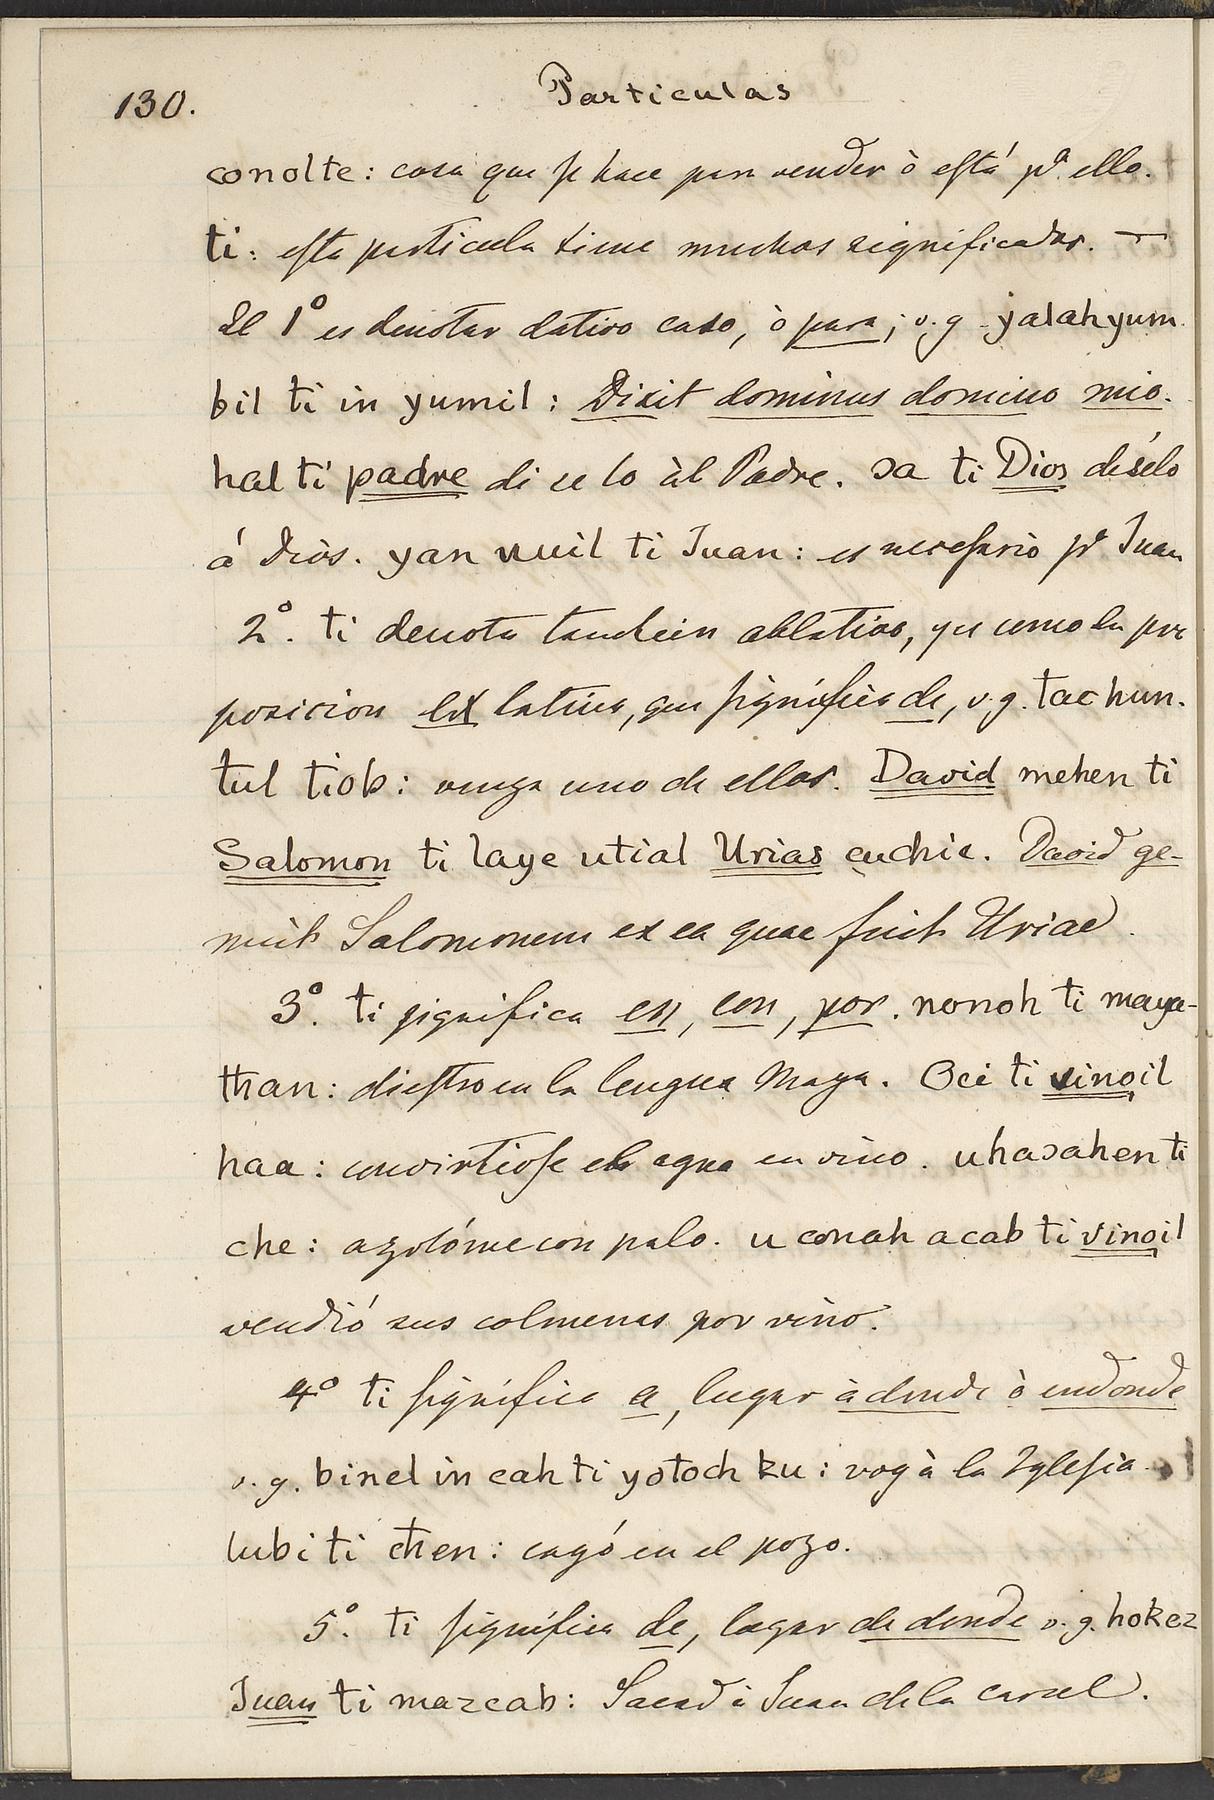 130. Particulas
conolte: cosa que se hace para vender ò está pª ello.
ti: esta particula tiene muchos significados. —
El 1º es denotar dativo caso, ò para; v.g. yalah yum
bil ti in yumil: Dixit dominus domino mio.
hal ti padre di se lo àl Padre. ɔa ti Dios díselo
á Diòs. yan uuil ti Juan: es necesario pª Juan
2º. ti denota tanbien ablativo, y es como la pre
posicion ex latina, que significa de, v.g. tac hun.
tul tiob: venga uno de ellos. David mehen ti
Salomon ti laye utial Urias cuchie. David ge-
nuit Salomonem ex ea quae fuit Uriae.
3º. ti significa en, con, por. nonoh ti maya-
than: diestro en la lengua Maya. Oci ti vinoil
haa: convirtiose el agua en vino. uhaɔahen ti
che: azotóme con palo. u conah acab ti vinoil
vendió sus colmenas por vino.
4º ti significa a, lugar àdonde ò endonde
v.g. binel in cah ti yotoch ku: voy à la Iglesia.
lubi ti chen: cayó en el pozo.
5º. ti significa de, lugar de donde v.g. hokez
Juan ti mazcab: Sacad à Juan de la carcel.